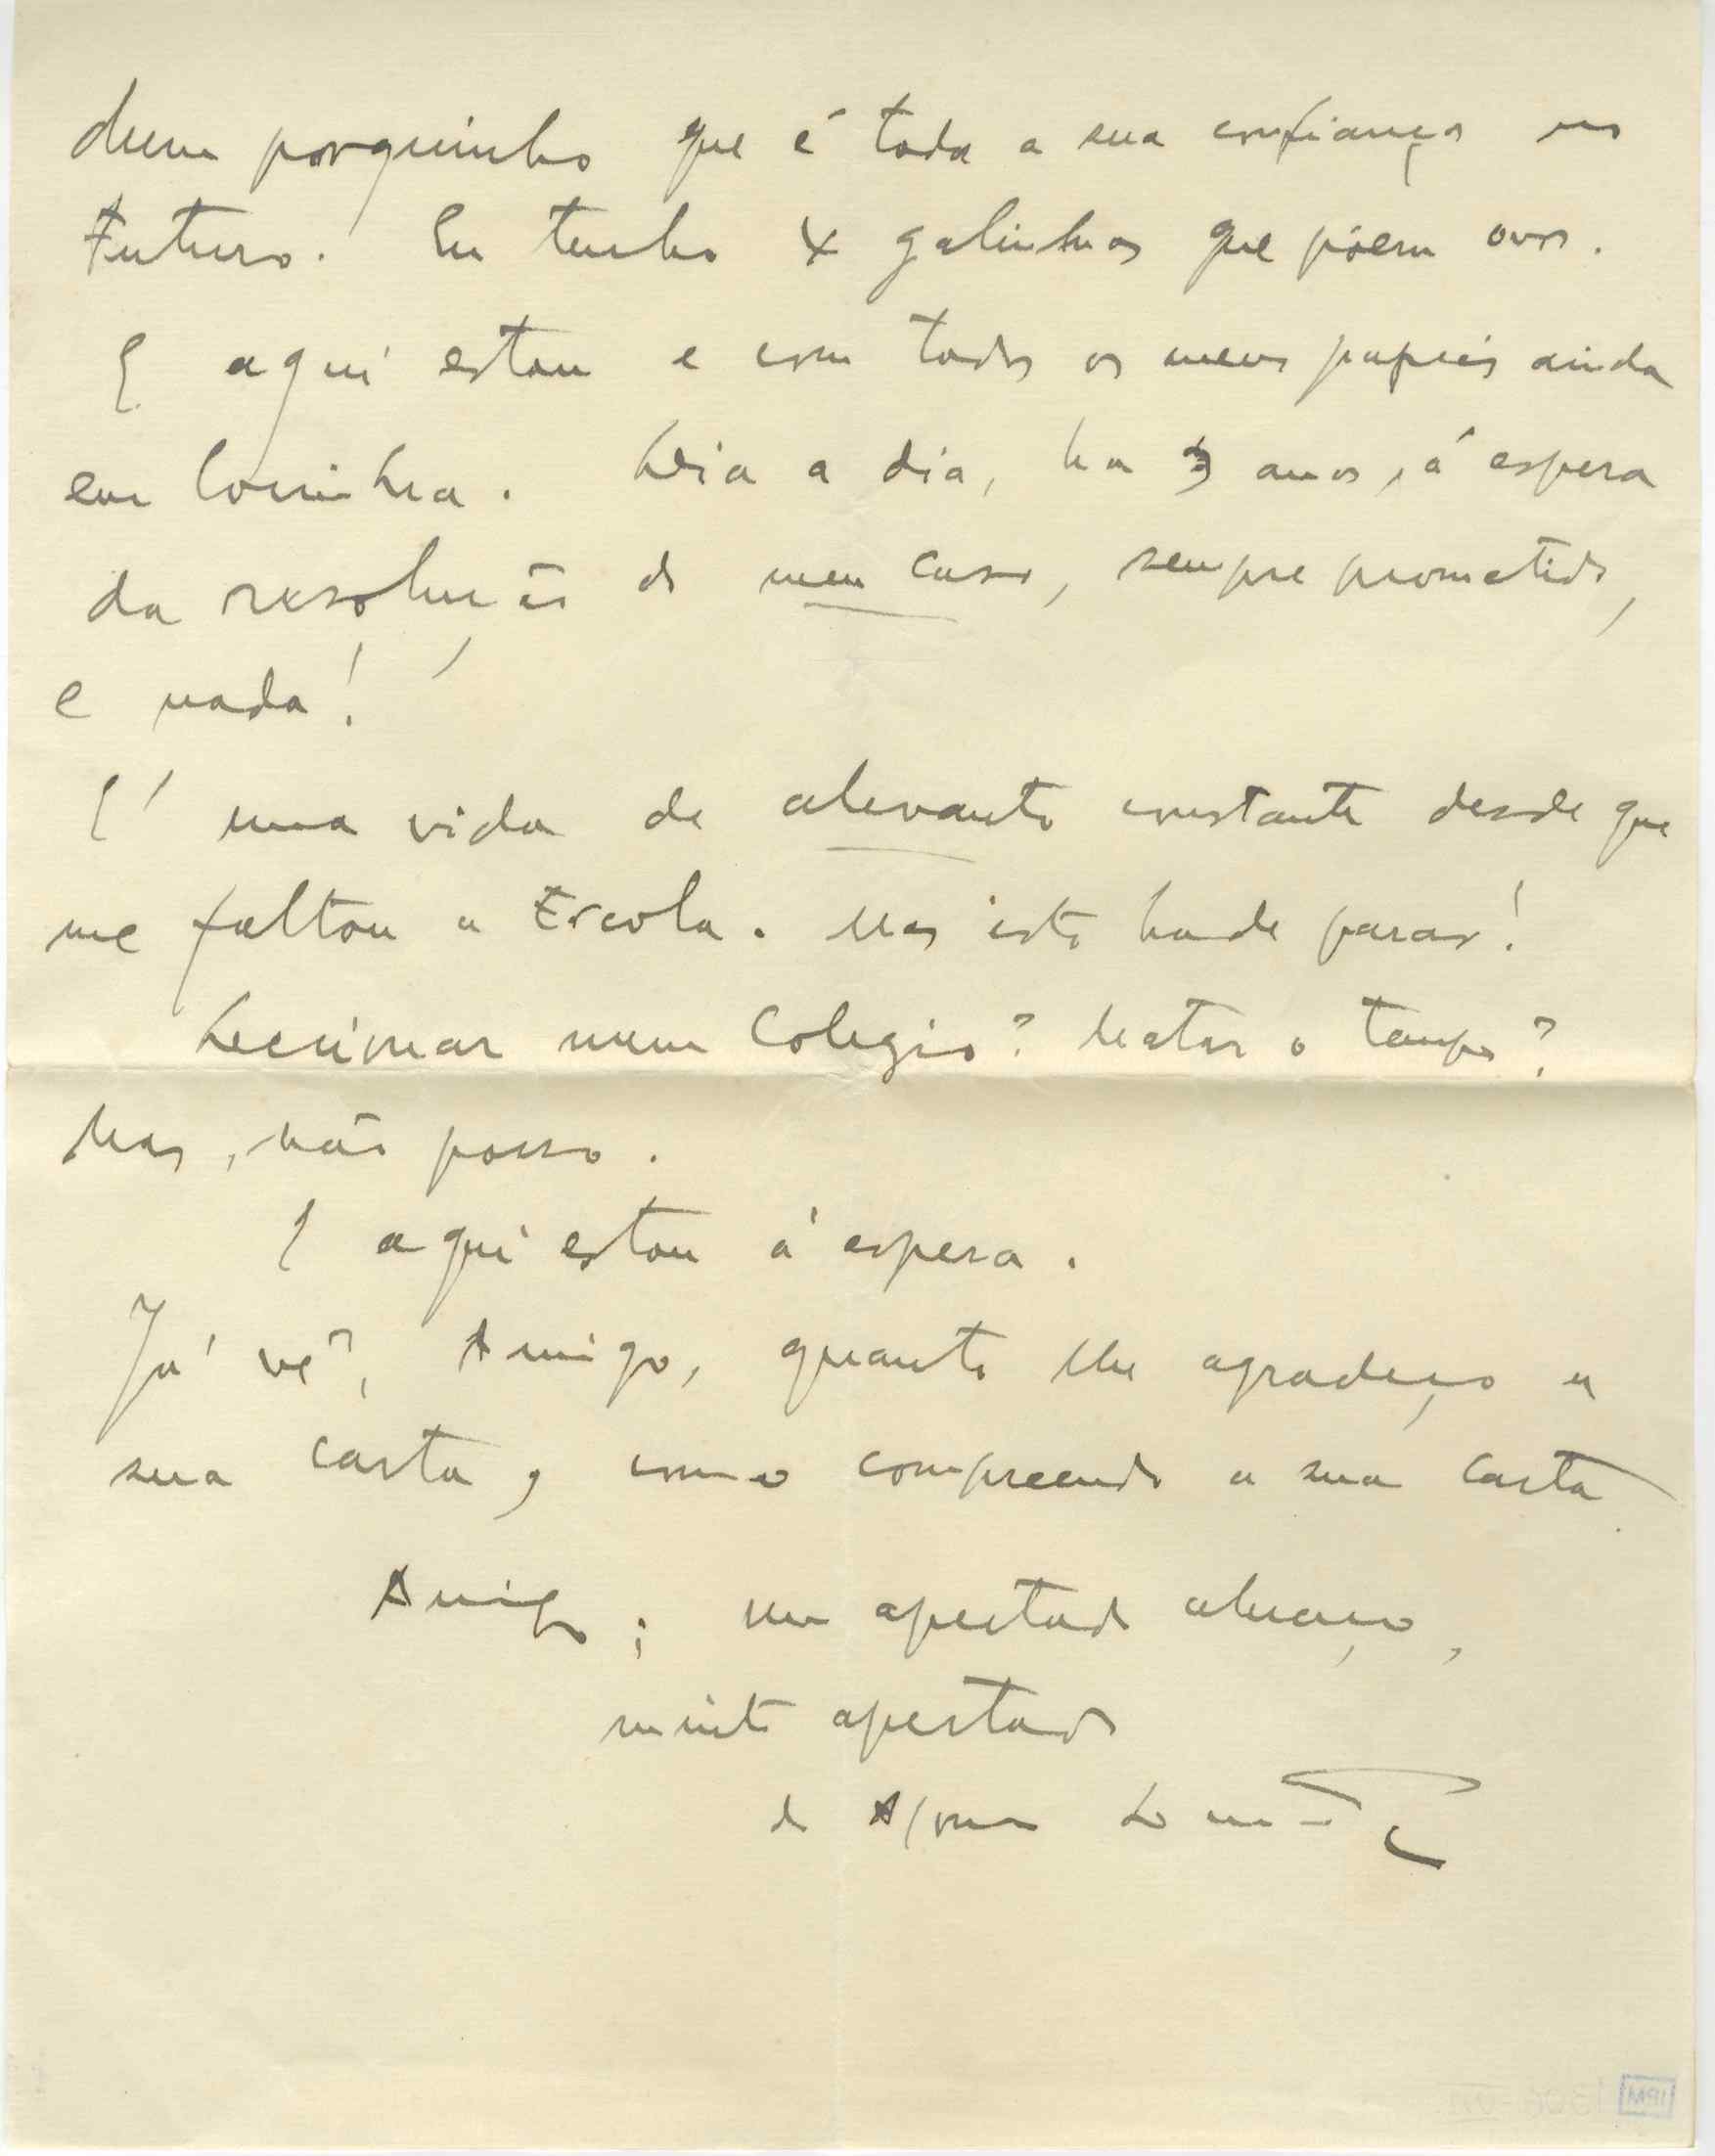 dum porquinho que é toda a sua confiança no
Futuro. Eu tenho 4 galinhas que põem ovos.
E aqui estou e com todos os meus papeis ainda
em Coimbra. Dia a dia, ha 3 anos, á espera
da resolução do meu caso, sempre prometido,
e nada!
É uma vida de alevanto constante desde que
me faltou a Escola. Mas isto hade parar!
Leccionar num Colegio? Matar o tempo?
Mas, não posso.
E aqui estou á espera.
Já vê, Amigo, quanto lhe agradeço a
sua carta, como compreendo a sua carta.
Amigo; um apertado abraço,
muito apertado
do
IPM